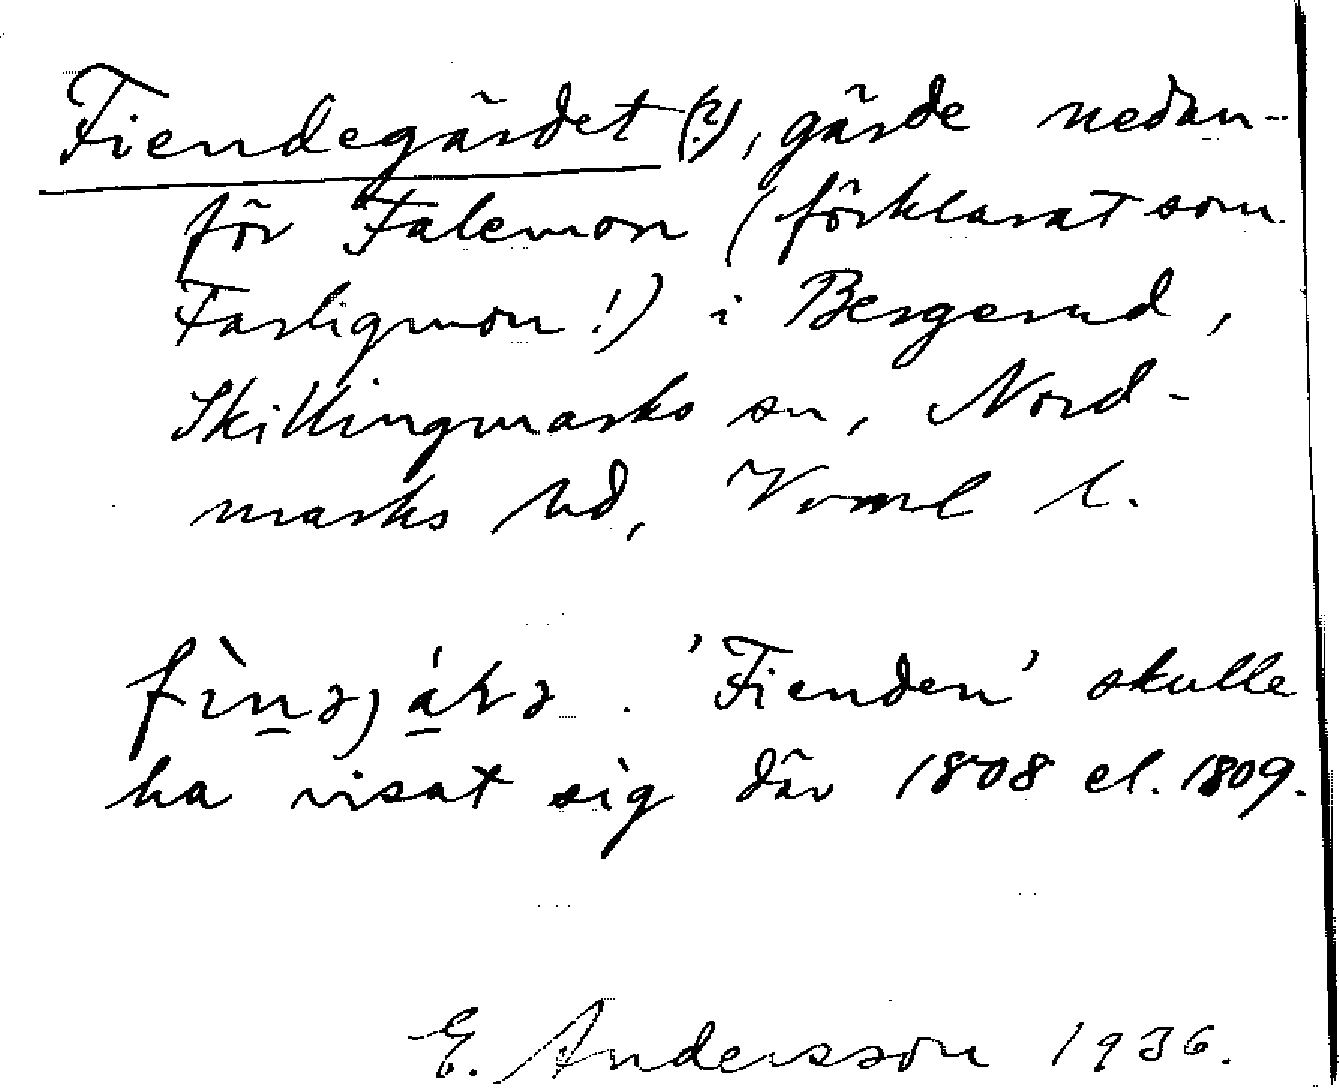 Fiendegärdet (?), gärde nedan-
för Falemon (förklarat som
Farligmon!) i Bergerud,
Skillingmarks sn, Nord-
marks hd, Värml l.
'Fienden' skulle
ha visat sig där 1808 el. 1809.
E. Andersson 1936.